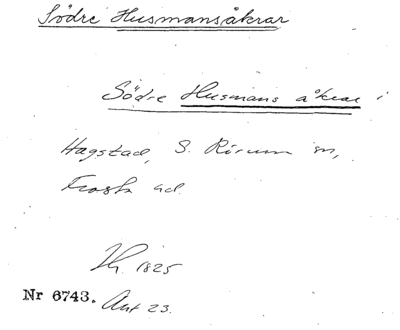 Södre Husmansåkrar
Södre Husmans åkrar i
Hagstad, S. Rörum sn,
Frosta hd.
1825
Nr 6743. Akt 23.